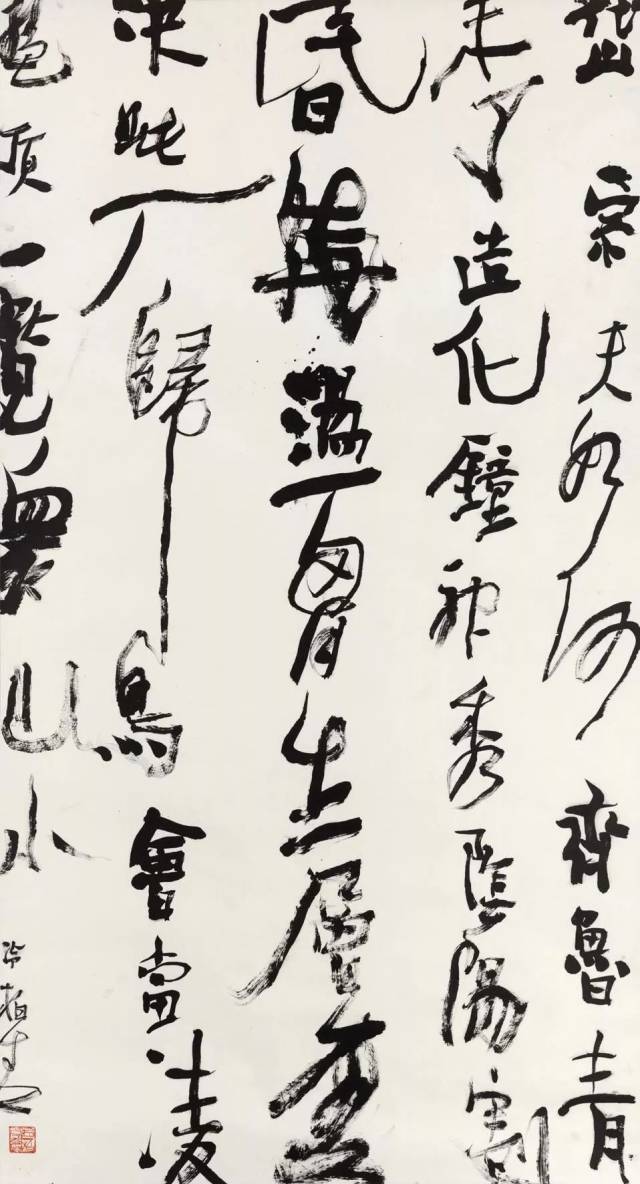 岱宗夫如何齊魯青
未了造化鐘神秀陰陽割
昏曉盪胷生層雲
決眥入歸鳥會當凌
絕頂一覽眾山小